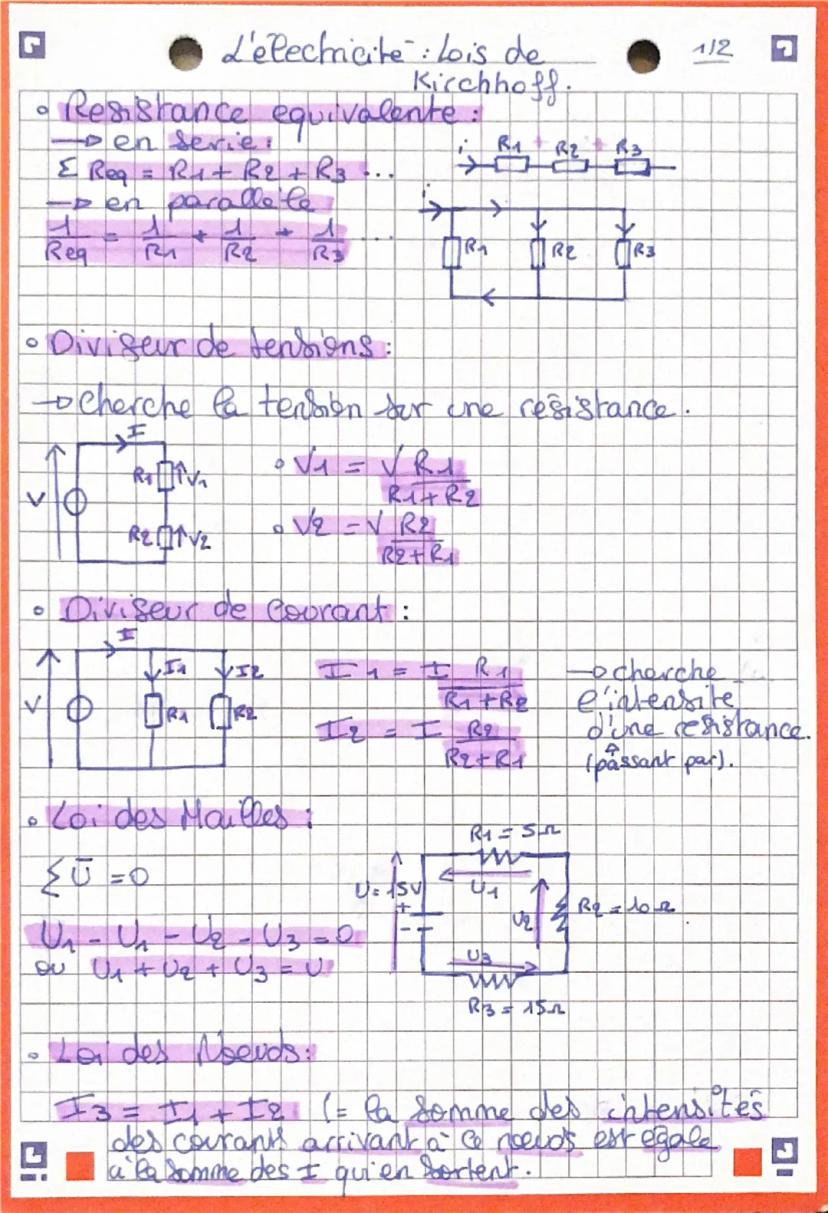 L'électricité : Lois de 1/2
Kirchhoff.
• Resistance equivalente :
→ en serie :
Σ Req = R1 + R2 + R3 ...
i R1 + R2 + R3
→ en parallèle
1/Req = 1/R1 + 1/R2 + 1/R3 ...
i R1 R2 R3
• Diviseur de tensions :
→ cherche la tension sur une résistance.
I
V R1 V1
R2 V2
• V1 = V R1/(R1+R2)
• V2 = V R2/(R2+R1)
• Diviseur de courant :
I
I1 I2
V R1 R2
I1 = I R1/(R1+R2)
I2 = I R2/(R2+R1)
→ cherche
l'intensite
d'une resistance.
(passant par).
• Loi des Mailles :
Σ Ū = 0
U1 - U1 - U2 - U3 = 0
ou U1 + U2 + U3 = U
R1 = 5Ω
U = 15V U1
+ U2 R2 = 10Ω
-
U3
R3 = 15Ω
• Loi des Noeuds :
I3 = I1 + I2 (= la somme des intensités
des courants arrivant à ce noeuds est égale
à la somme des I qui en sortent.